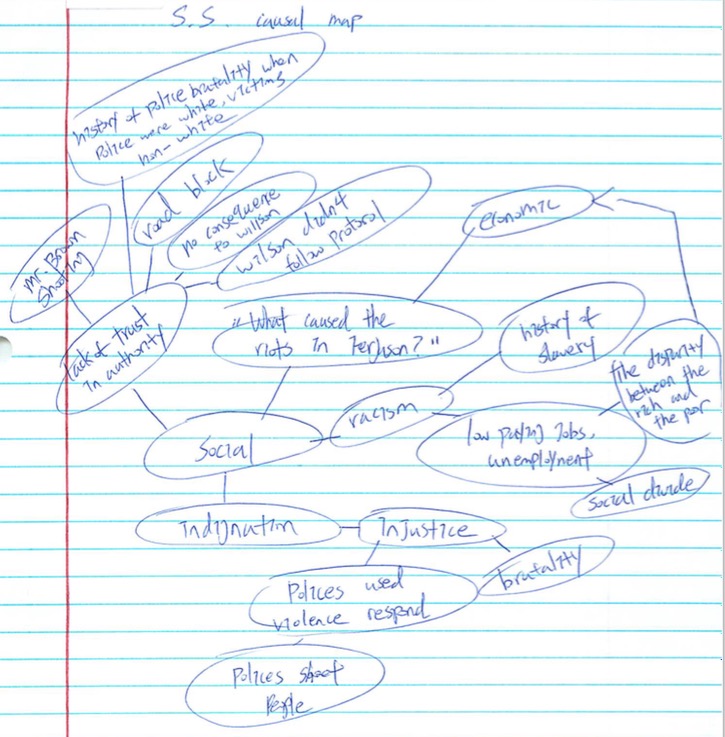 S.S. causal map
history of police brutality when
Police were white, victims
non-white
road block
no consequence
to willson
wilson didn4
follow protorol
economic
mr. Brown
shooting
lack of trust
in authority
"What caused the
riots in Ferguson?"
history of
slavery
the disparity
between the
rich and
the poor
racism
low paying Jobs,
unemployment
social
social divide
indignation
InJustice
brutality
Polices used
violence respond
Polices shoot
People